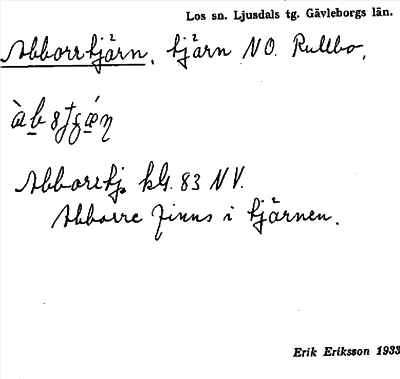 Los sn. Ljusdals tg. Gävleborgs län.
Abborrtjärn, tjärn NO. Rullbo,
Abborrtj. kbl. 83 NV.
Abborre finns i tjärnen.
Erik Eriksson 1933